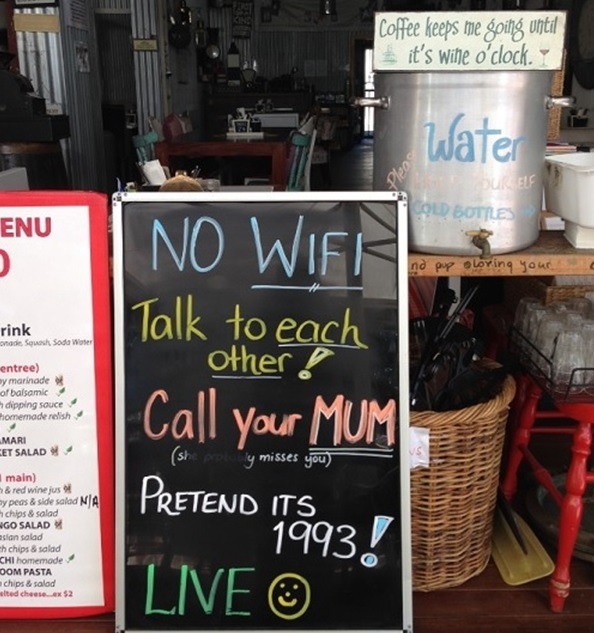 Coffee keeps me going until
it's wine o'clock.
Water
YOURSELF
COLD BOTTLES
NO WIFI
Talk to each
other!
Call your MUM
(she probably misses you)
PRETEND ITS
1993!
LIVE
ENU
rink
onade, Squash, Soda Water
entree)
by marinade
of balsamic
h dipping sauce
homemade relish
AMARI
KET SALAD
main)
h & red wine jus
hy peas & side salad N/A
h chips & salad
NGO SALAD
asian salad
th chips & salad
CHI homemade
OOM PASTA
chips & salad
elted cheese...ex $2